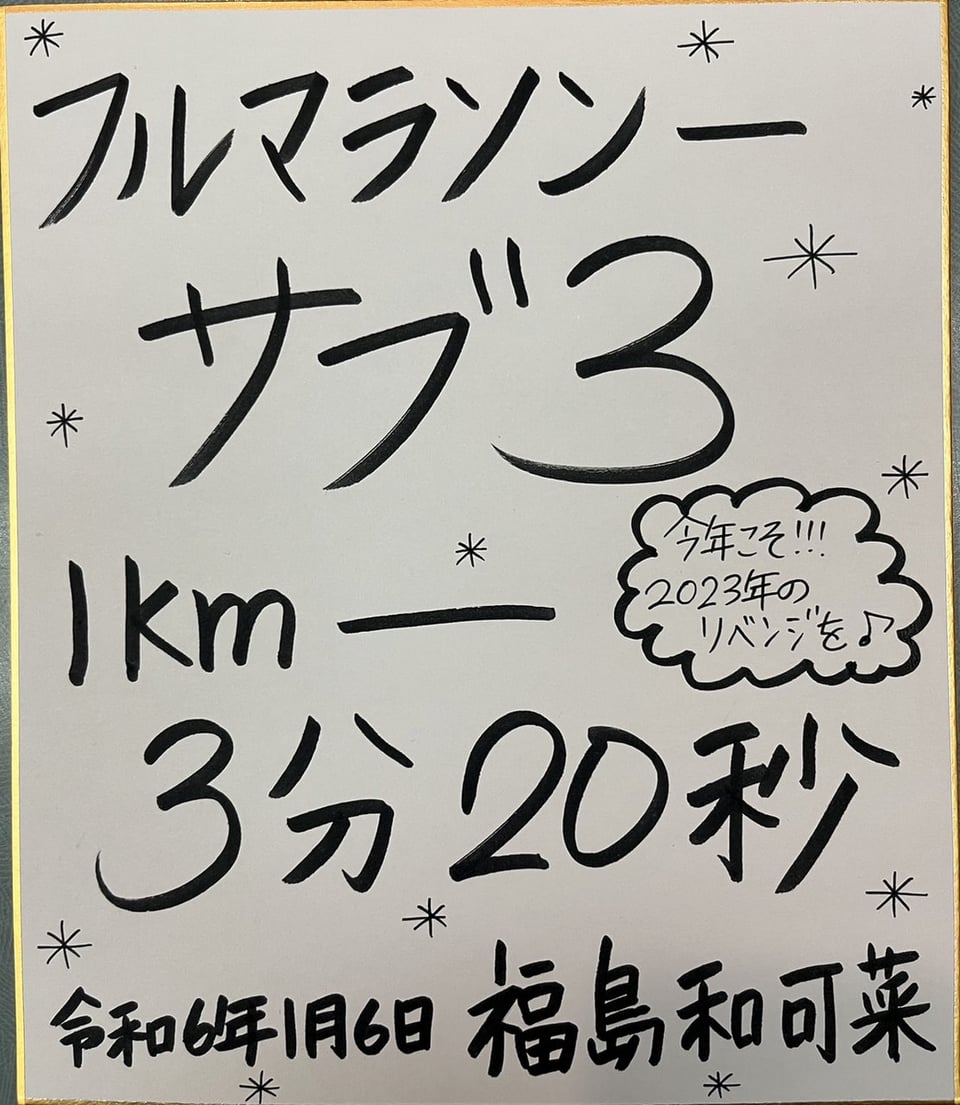 フルマラソンー
サブ3
今年こそ!!!
2023年の
リベンジを♪
1km ー
3分20秒
令和6年1月6日 福島和可菜